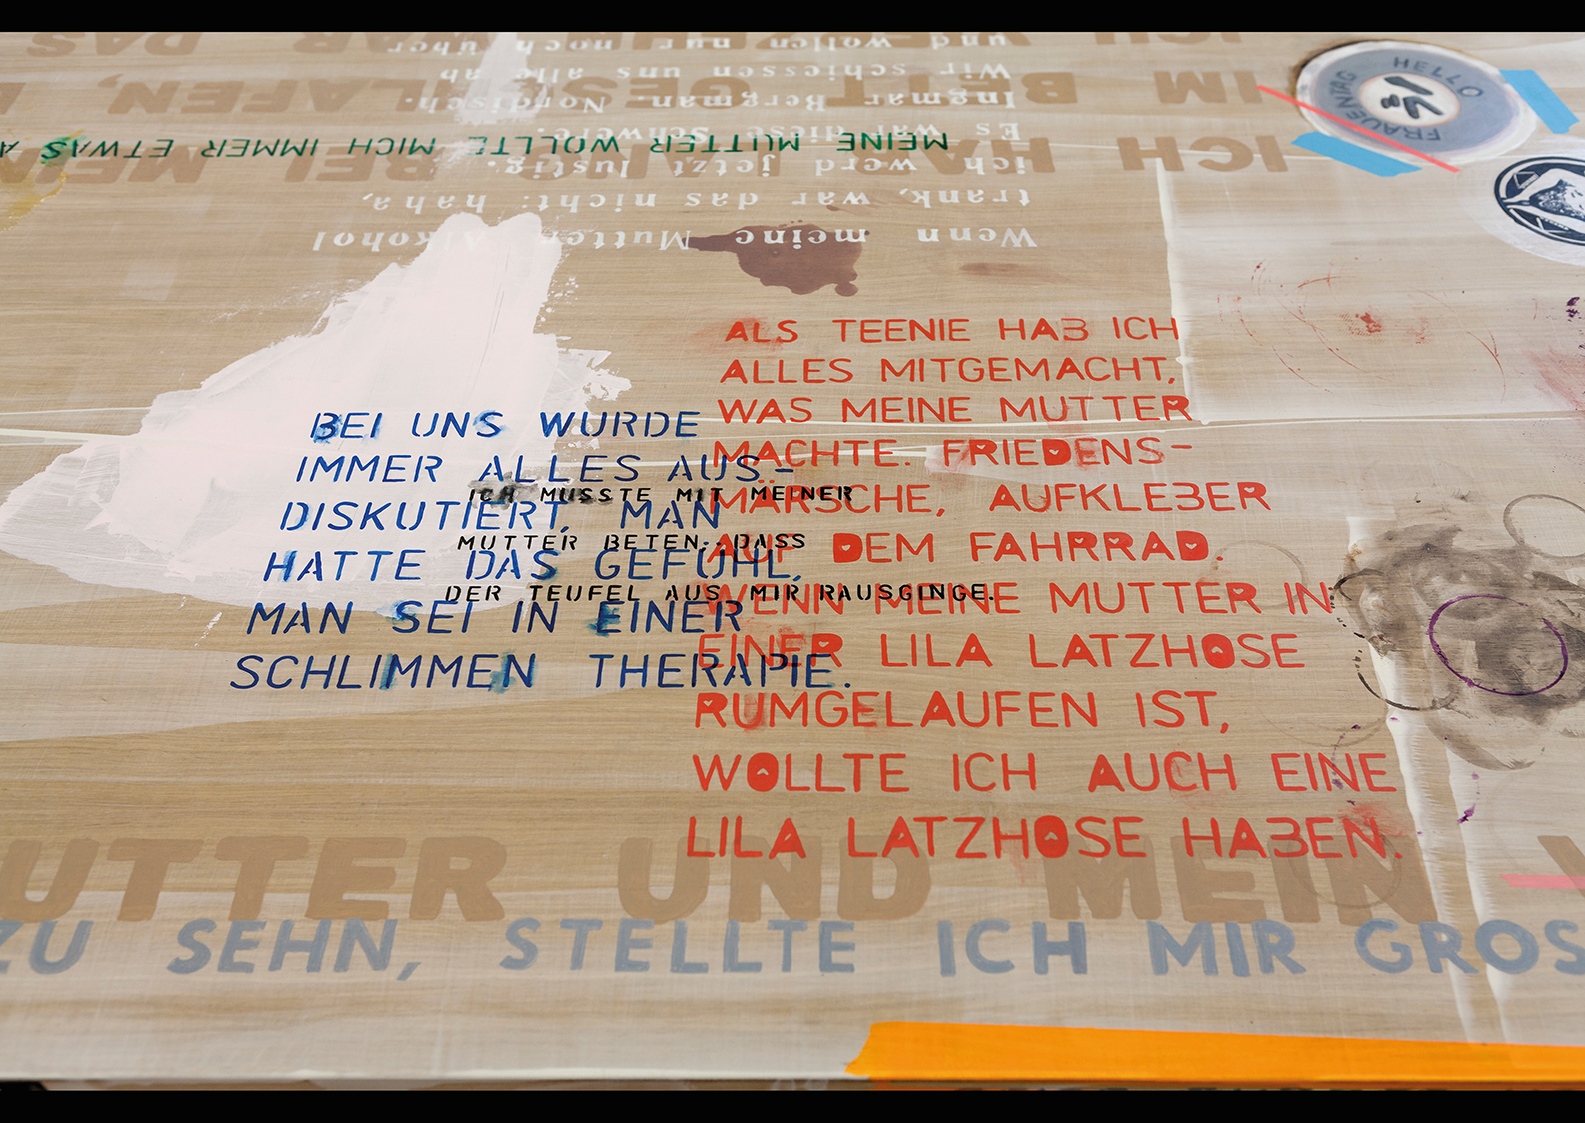 ALS TEENIE HAB ICH
ALLES MITGEMACHT,
WAS MEINE MUTTER
MACHTE. FRIEDENS-
MÄRSCHE, AUFKLEBER
AUF DEM FAHRRAD.
WENN MEINE MUTTER IN
EINER LILA LATZHOSE
RUMGELAUFEN IST,
WOLLTE ICH AUCH EINE
LILA LATZHOSE HABEN.
BEI UNS WURDE
IMMER ALLES AUS-
DISKUTIERT, MAN
HATTE DAS GEFÜHL,
MAN SEI IN EINER
SCHLIMMEN THERAPIE.
ICH MUSSTE MIT MEINER
MUTTER BETEN, DASS
DER TEUFEL AUS MIR RAUSGINGE.
UTTER UND MEIN
ZU SEHN, STELLTE ICH MIR GROS
Wenn meine Mutter Alkohol
trank, war das nicht: haha,
ich werd jetzt lustig.
Es war diese Schwere.
Ingmar Bergman. Nordisch.
Wir schiessen uns alle ab
und wollen nur noch über
MEINE MUTTER WOLLTE MICH IMMER ETWAS
ICH HAB MAL BEI ME
IM BETT GESCHLAFEN,
DAS
HELLO
FRAUENTAG